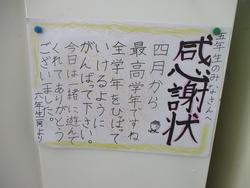 五年生のみなさんへ
感謝状
四月から
最高学年ですね
全学年をひっぱって
いけるように
がんばって下さい。
今日は一緒に遊んで
くれてありがとう
ございました。
六年生より